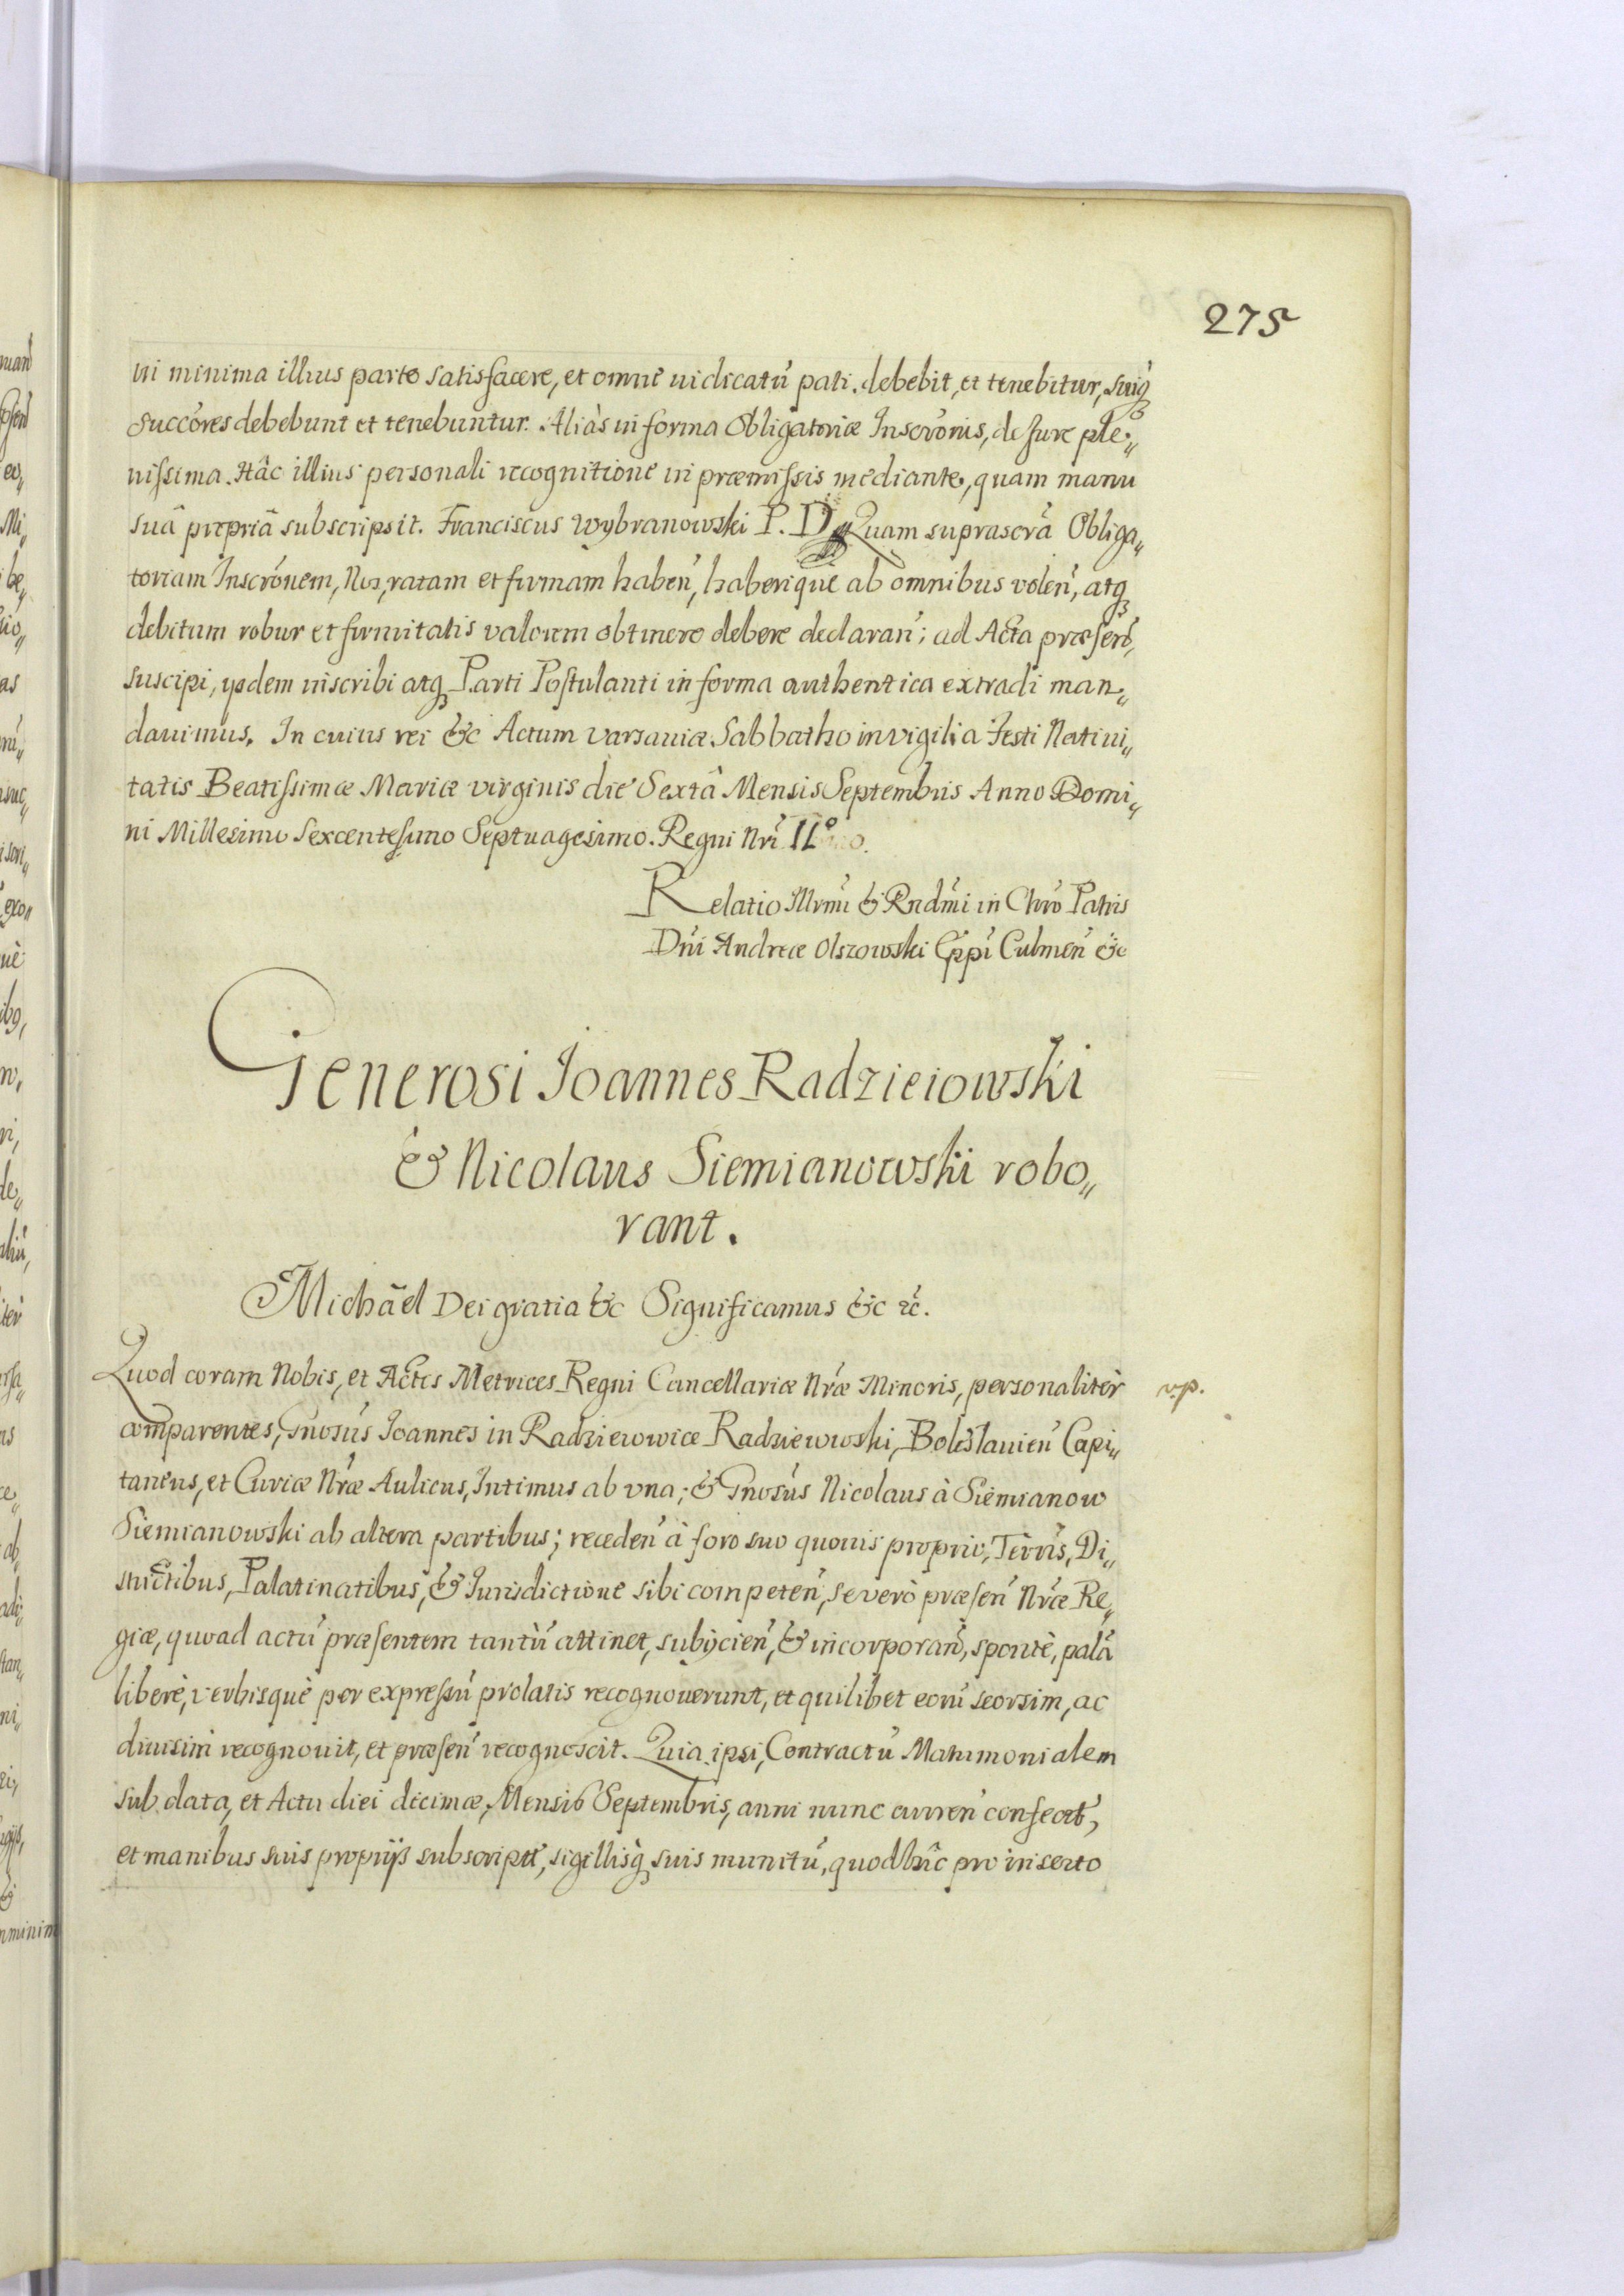 275
in minima illius parte satisfacere, et omne iudicatũ pati debebit, et tenebitur, suiq́
succóres debebunt et tenebuntur. Aliàs in forma Obligatoriæ Inscrónis, de Jure ple„
nissima. Hâc illius personali recognitione in præmissis mediante, quam manu
suâ propriâ subscripsit. Franciscus Wybranowski P. D. Quam suprascrã Obliga„
toriam Inscrónem, Nos, ratam et firmam habeń, haberique ab omnibus voleń, atq́
debitum robur et firmitatis valorem obtinere debere declarań; ad Acta præseń,
suscipi, ijsdem inscribi atq́ Parti Postulanti in forma authentica extradi man„
dauimus. In cuius rei &c Actum Varsauiæ Sabbatho in vigilia Festi Natiui„
tatis Beatissimæ Mariæ virginis die Sextâ Mensis Septembris Anno Domi„
ni Millesimo Sexcentesimo Septuagesimo. Regni Nrí II°
Relatio Illrmi & Rndmi in Chró Patris
Dńi Andreæ Olszowski Eppí Culmeń &c
Generosi Joannes Radzieiowski
& Nicolaus Siemianowski robo„
rant.
Michãel Dei gratia &c Significamus &c &c.
Quod coram Nobis, et Actis Metrices Regni Cancellariæ Nræ Minoris, personalitèr
v.p.
comparentes, Gnosus Joannes in Radziewowice Radziewowski, Boleslauień Capi„
taneus, et Curiæ Nræ Aulicus, Intimus ab vna; & Gnosus Nicolaus à Siemianow
Siemianowski ab altera partibus; recedeń à foro suo quouis proprio, Terris, Di„
strictibus, Palatinatibus, & Iurisdictione sibi competeń, se verò præseń Nræ Re„
giæ, quoad actũ præsentem tantũ attinet, subijcień, & incorporań, spontè, palã
liberè, verbisquè per expressũ prolatis recognouerunt, et quilibet eorũ seorsim, ac
diuisim recognouit, et præseń recognoscit. Quia ipsi, Contractũ Matrimonialem
sub data, et Actu diei decimæ, Mensis Septembris, anni nunc curreń confect,
et manibus suis proprijs subscriptũ, sigillisq́ suis munitũ, quod hîc pro inserto